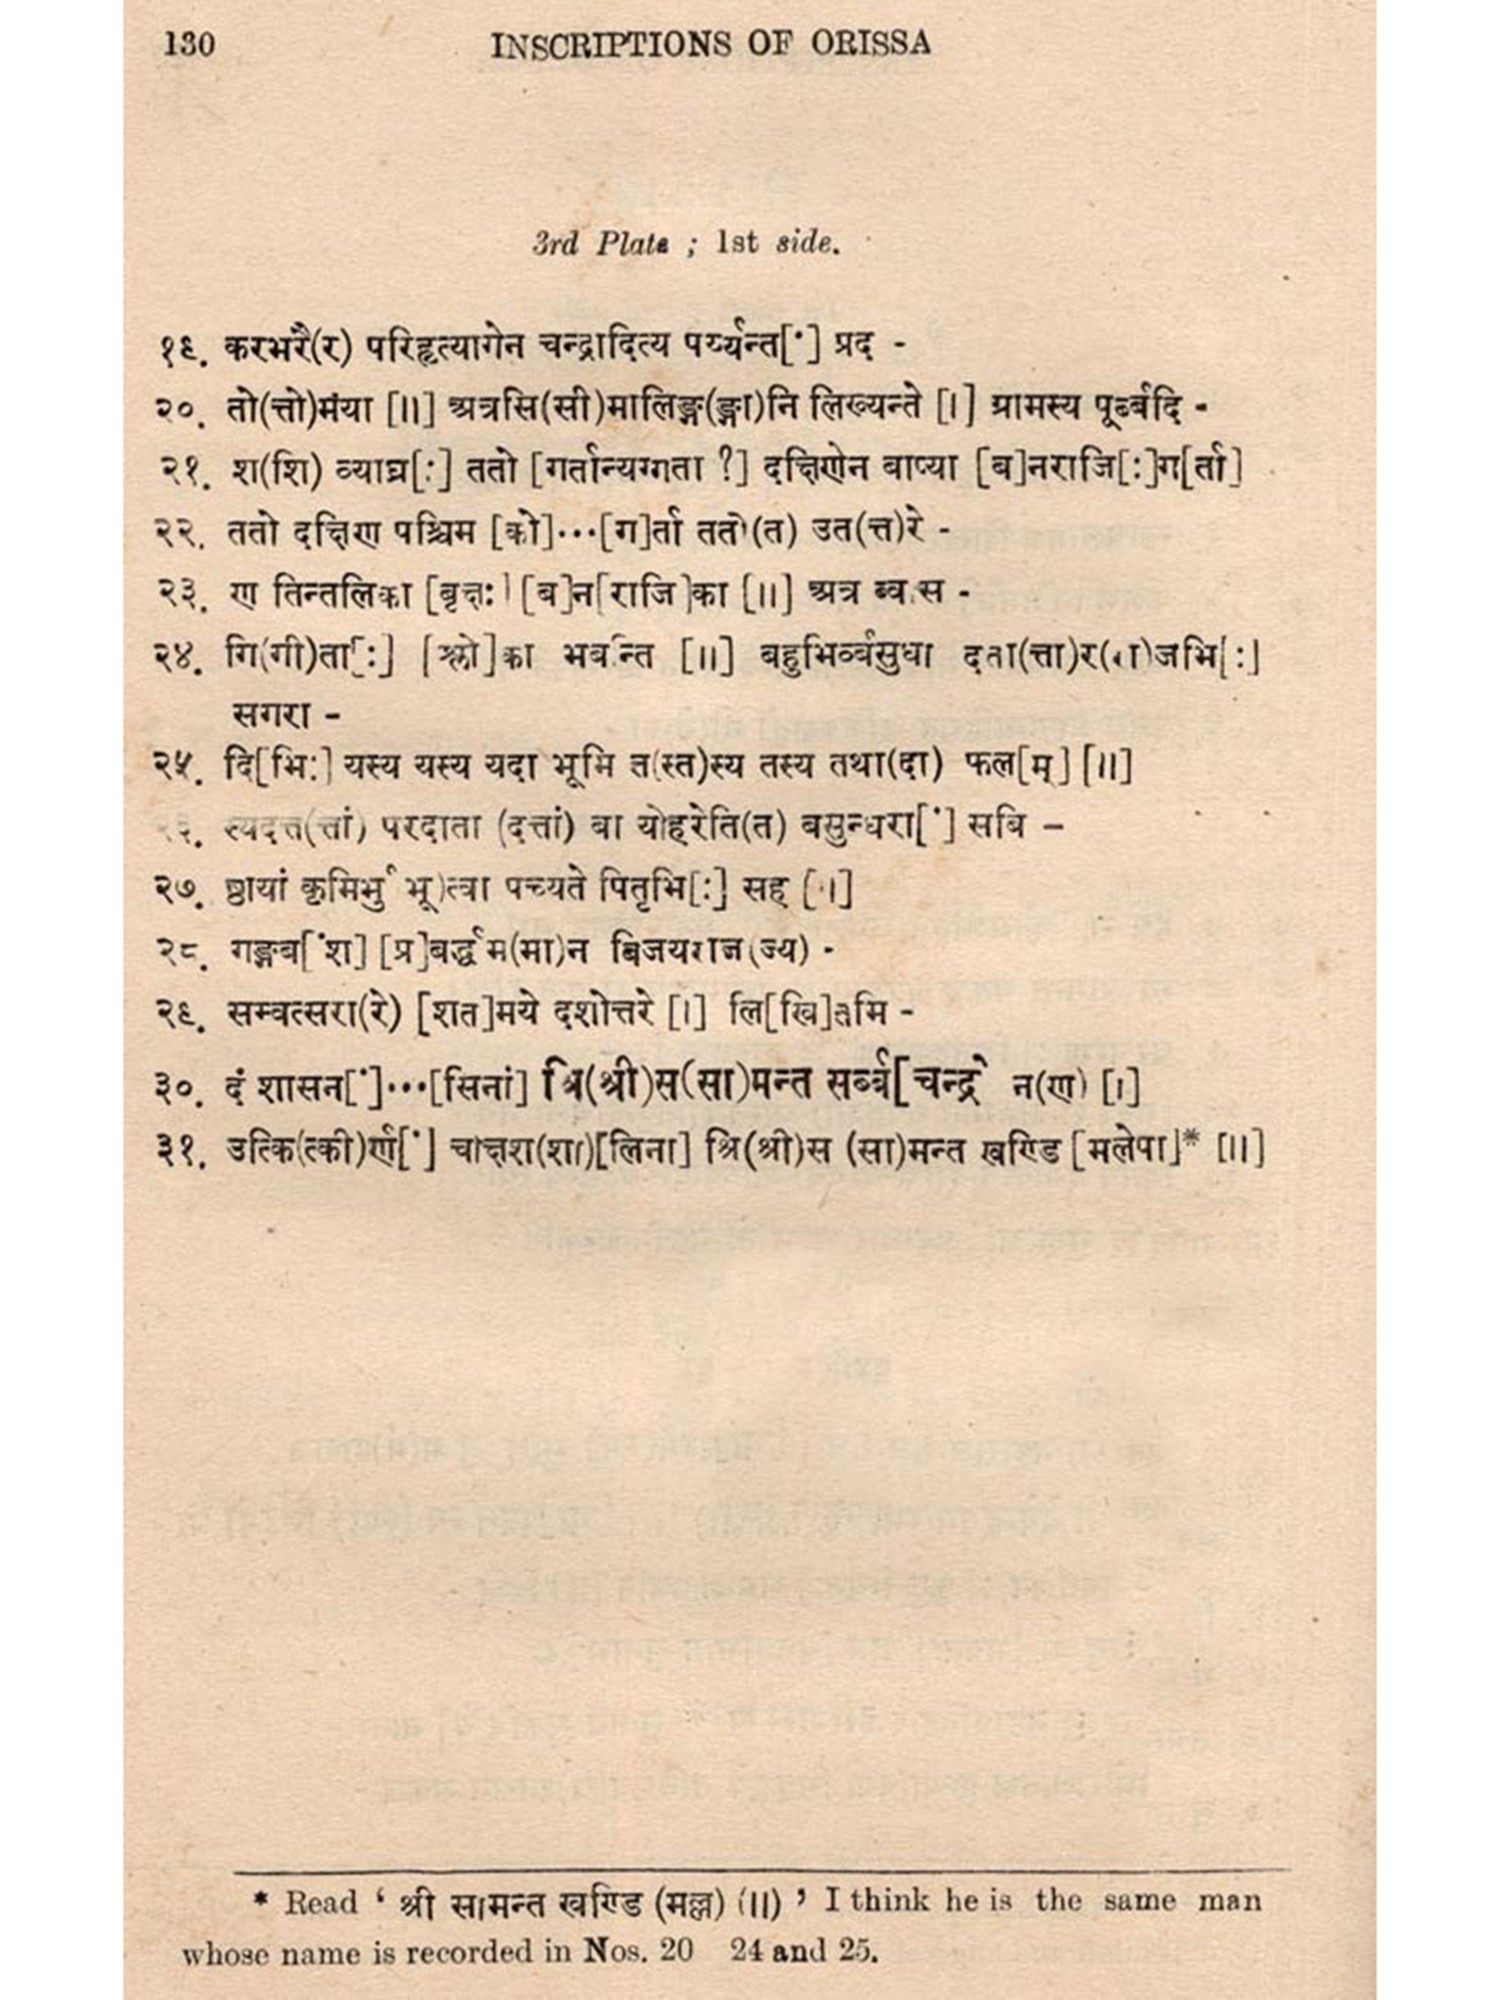 130 INSCRIPTIONS OF ORISSA
3rd Plate ; 1st side.
१९. करभरै(र) परिहृत्यागेन चन्द्रादित्य पर्य्यन्त[ं] प्रद -
२०. तो(त्तो)र्मया [॥] अत्रसि(सी)मालिङ्ग(ङ्गा)नि लिख्यन्ते [।] ग्रामस्य पूर्ब्बदि -
२१. श(शि) व्याघ्र[ः] ततो [गर्तान्यगता ?] दक्षिणेन बाप्या [ब]नराजि[ः]ग[र्ता]
२२. ततो दक्षिण पश्चिम [को]...[ग]र्ता ततो(त) उत(त्त)रे -
२३. ण तिन्तलिका [बृक्षः] [ब]न[राजि]का [॥] अत्र ब्यास -
२४. गि(गी)ता[ः] [श्लो]का भवन्ति [॥] बहुभिर्ब्बसुधा दता(त्ता)र(रा)जभि[ः]
सगरा -
२५. दि[भिः] यस्य यस्य यदा भूमि त(स्त)स्य तस्य तथा(दा) फल[म्] [॥]
२६. स्यदत्त(त्तां) परदाता (दत्तां) बा योहरेति(त) बसुन्धरा[ं] सबि -
२७. ष्ठायां कृमिर्भु(र्भू)त्वा पच्यते पितृभि[ः] सह [॥]
२८. गङ्गब[ंश] [प्र]बर्द्धम(मा)न बिजयराज(ज्य) -
२९. सम्वत्सरा(रे) [शत]मये दशोत्तरे [।] लि[खि]तमि -
३०. दं शासन[ं]...[सिनां] श्रि(श्री)स(सा)मन्त सर्ब्ब[चन्द्रे न(ण) [।]
३१. उत्कि(त्की)र्ण[ं] चाक्षश(शा)[लिना] श्रि(श्री)स (सा)मन्त खण्डि [मलेपा]* [॥]
* Read ‘ श्री सामन्त खण्डि (मल्ल) (॥) ’ I think he is the same man
whose name is recorded in Nos. 20 24 and 25.